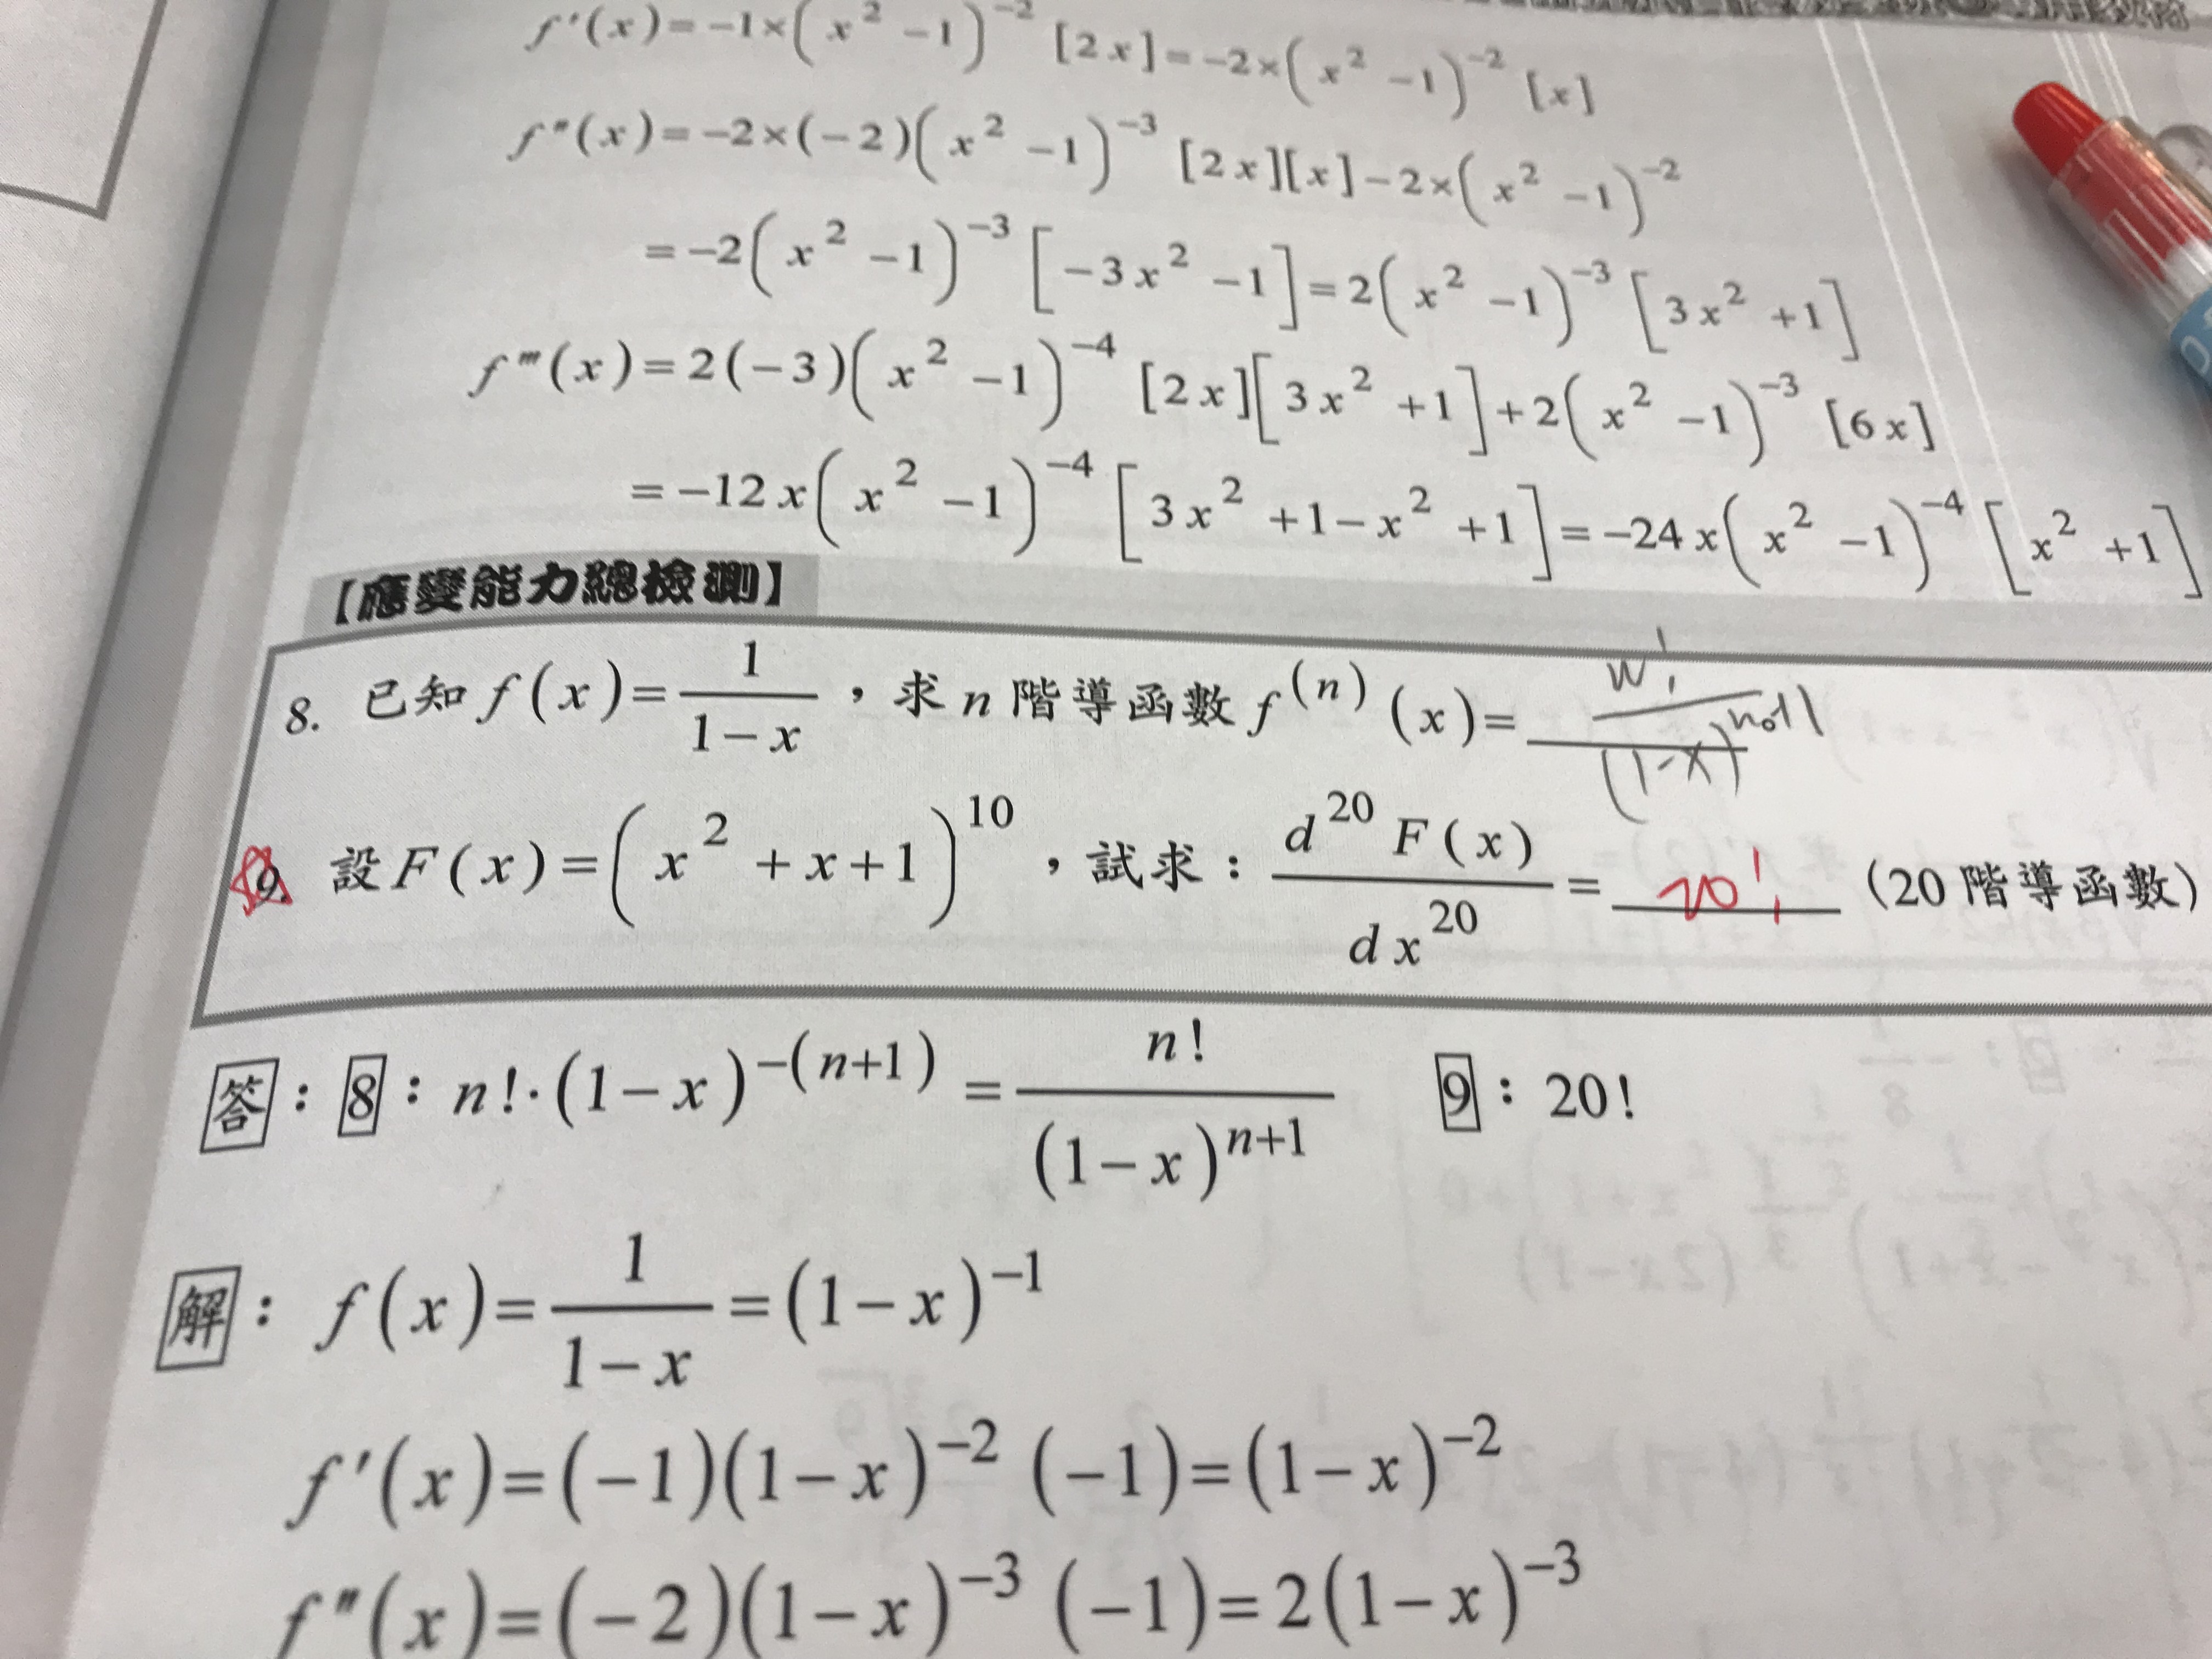 f'(x)=-1×(x²-1)⁻²[2x]=-2×(x²-1)⁻²[x]
f"(x)=-2×(-2)(x²-1)⁻³[2x][x]-2×(x²-1)⁻²
=-2(x²-1)⁻³[-3x²-1]=2(x²-1)⁻³[3x²+1]
f'''(x)=2(-3)(x²-1)⁻⁴[2x][3x²+1]+2(x²-1)⁻³[6x]
=-12x(x²-1)⁻⁴[3x²+1-x²+1]=-24x(x²-1)⁻⁴[x²+1]
【應變能力總檢測】
8. 已知 f(x)=1/(1-x)，求 n 階導函數 f⁽ⁿ⁾(x)= n!/(1-x)ⁿ⁺¹
9. 設 F(x)=(x²+x+1)¹⁰，試求：d²⁰F(x)/dx²⁰= 20! (20 階導函數)
答：8：n!·(1-x)⁻⁽ⁿ⁺¹⁾=n!/(1-x)ⁿ⁺¹ 9：20!
解：f(x)=1/(1-x)=(1-x)⁻¹
f'(x)=(-1)(1-x)⁻²(-1)=(1-x)⁻²
f"(x)=(-2)(1-x)⁻³(-1)=2(1-x)⁻³